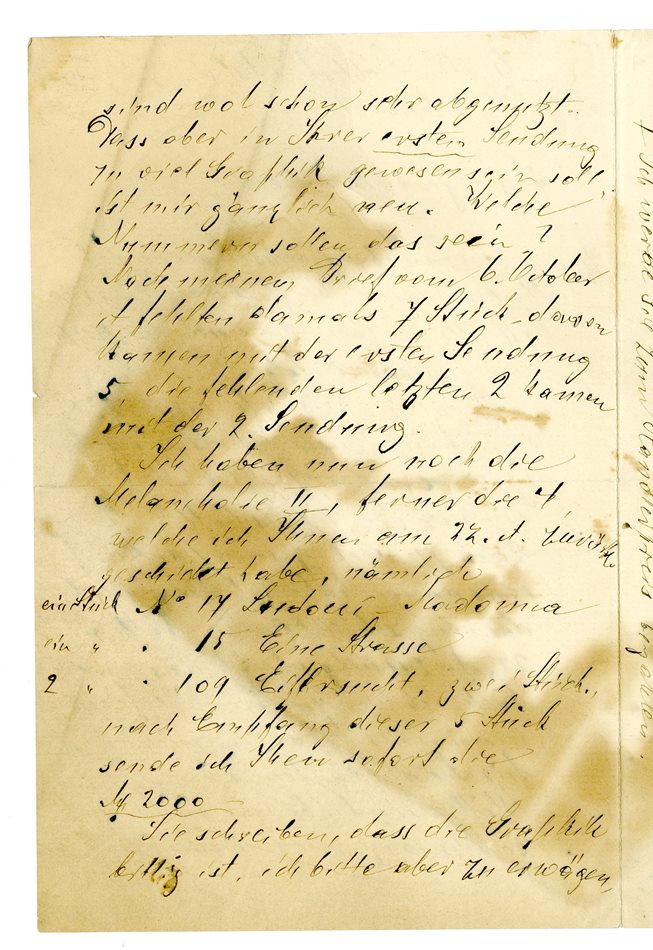 sind wol schon sehr abgenutzt.
Dass aber in Ihrer ersten Sendung
zu viel Graphik gewesen sein soll,
ist mir gänzlich neu. Welche
Nummern sollen das sein?
Nach meinem Brief vom 6. October
fehlten damals 7 Stück, davon
kamen mit der ersten Sendung
5, die fehlenden letzten 2 kamen
mit der 2. Sendung.
Sie haben nun noch die
Melancholie II, ferner die 4
welche ich Ihnen am 22. d. zurück-
geschickt habe, nämlich
ein Stück No 17 Madonna
ein " " 15 Eine Strasse
2 " " 109 Eifersucht, zwei Stück,
nach Empfang dieser 5 Stück
sende ich Ihnen sofort die
M 2000
Sie schreiben, dass die Graphik
billig ist, ich bitte aber zu erwägen,
+ Ich werde den bezahlen.